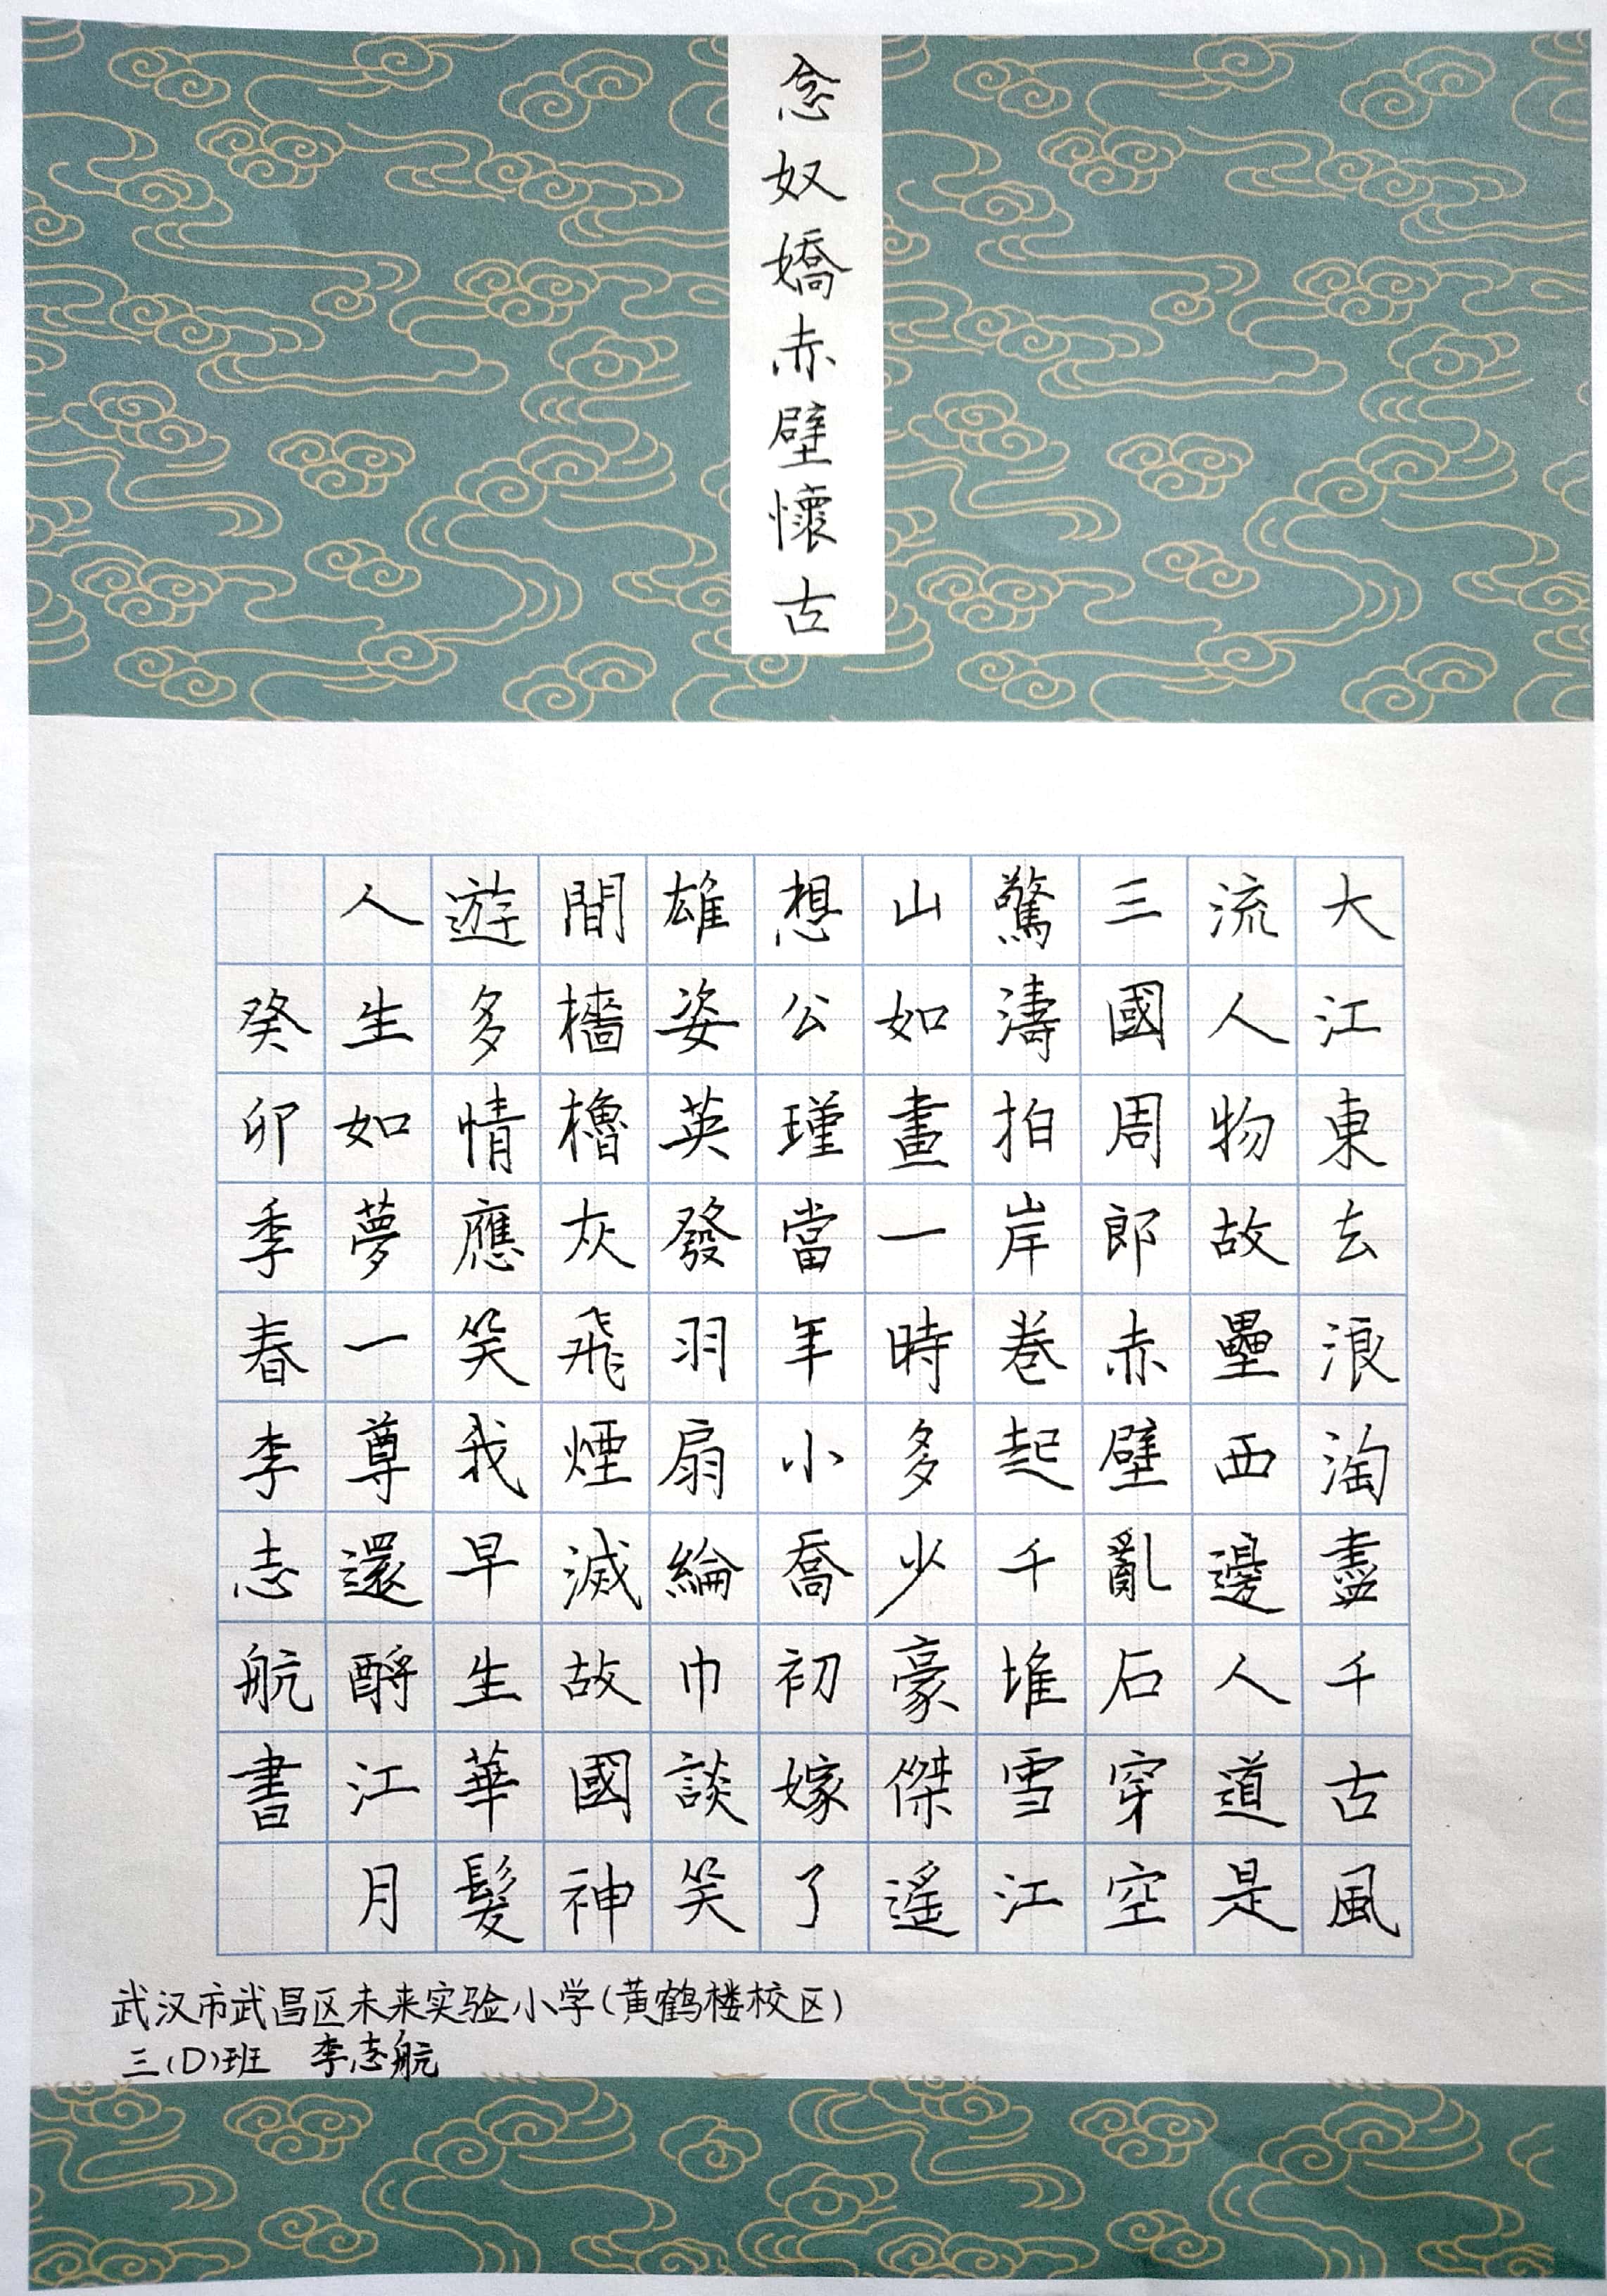 念奴嬌赤壁懷古
大江東去浪淘盡千古風
流人物故壘西邊人道是
三國周郎赤壁亂石穿空
驚濤拍岸卷起千堆雪江
山如畫一時多少豪傑遙
想公瑾當年小喬初嫁了
雄姿英發羽扇綸巾談笑
間檣櫓灰飛煙滅故國神
遊多情應笑我早生華髮
人生如夢一尊還酹江月
癸卯季春李志航書
武汉市武昌区未来实验小学(黄鹤楼校区)
三(D)班 李志航